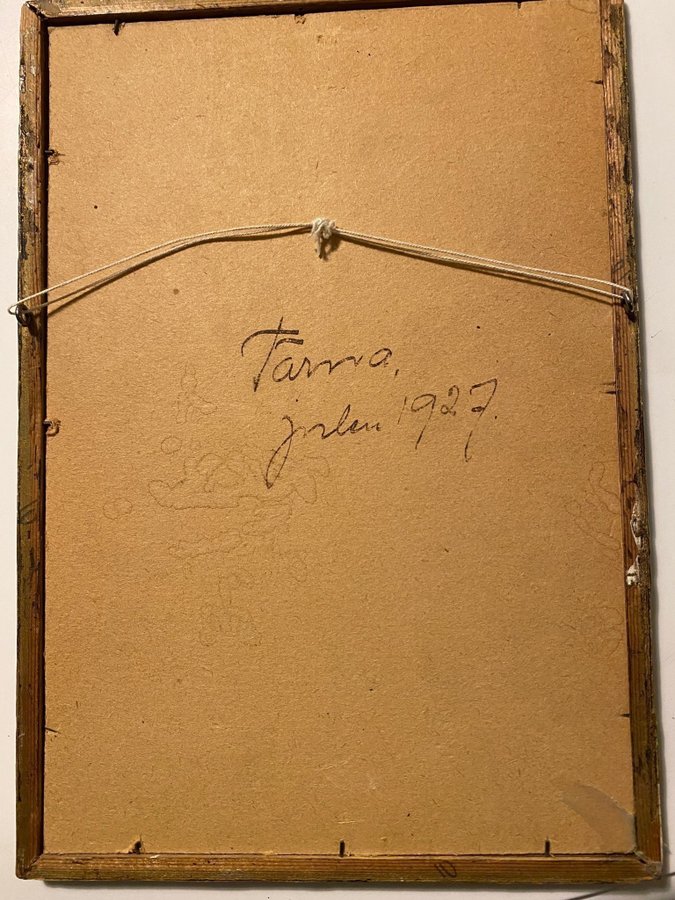 Tärna,
julen 1927.